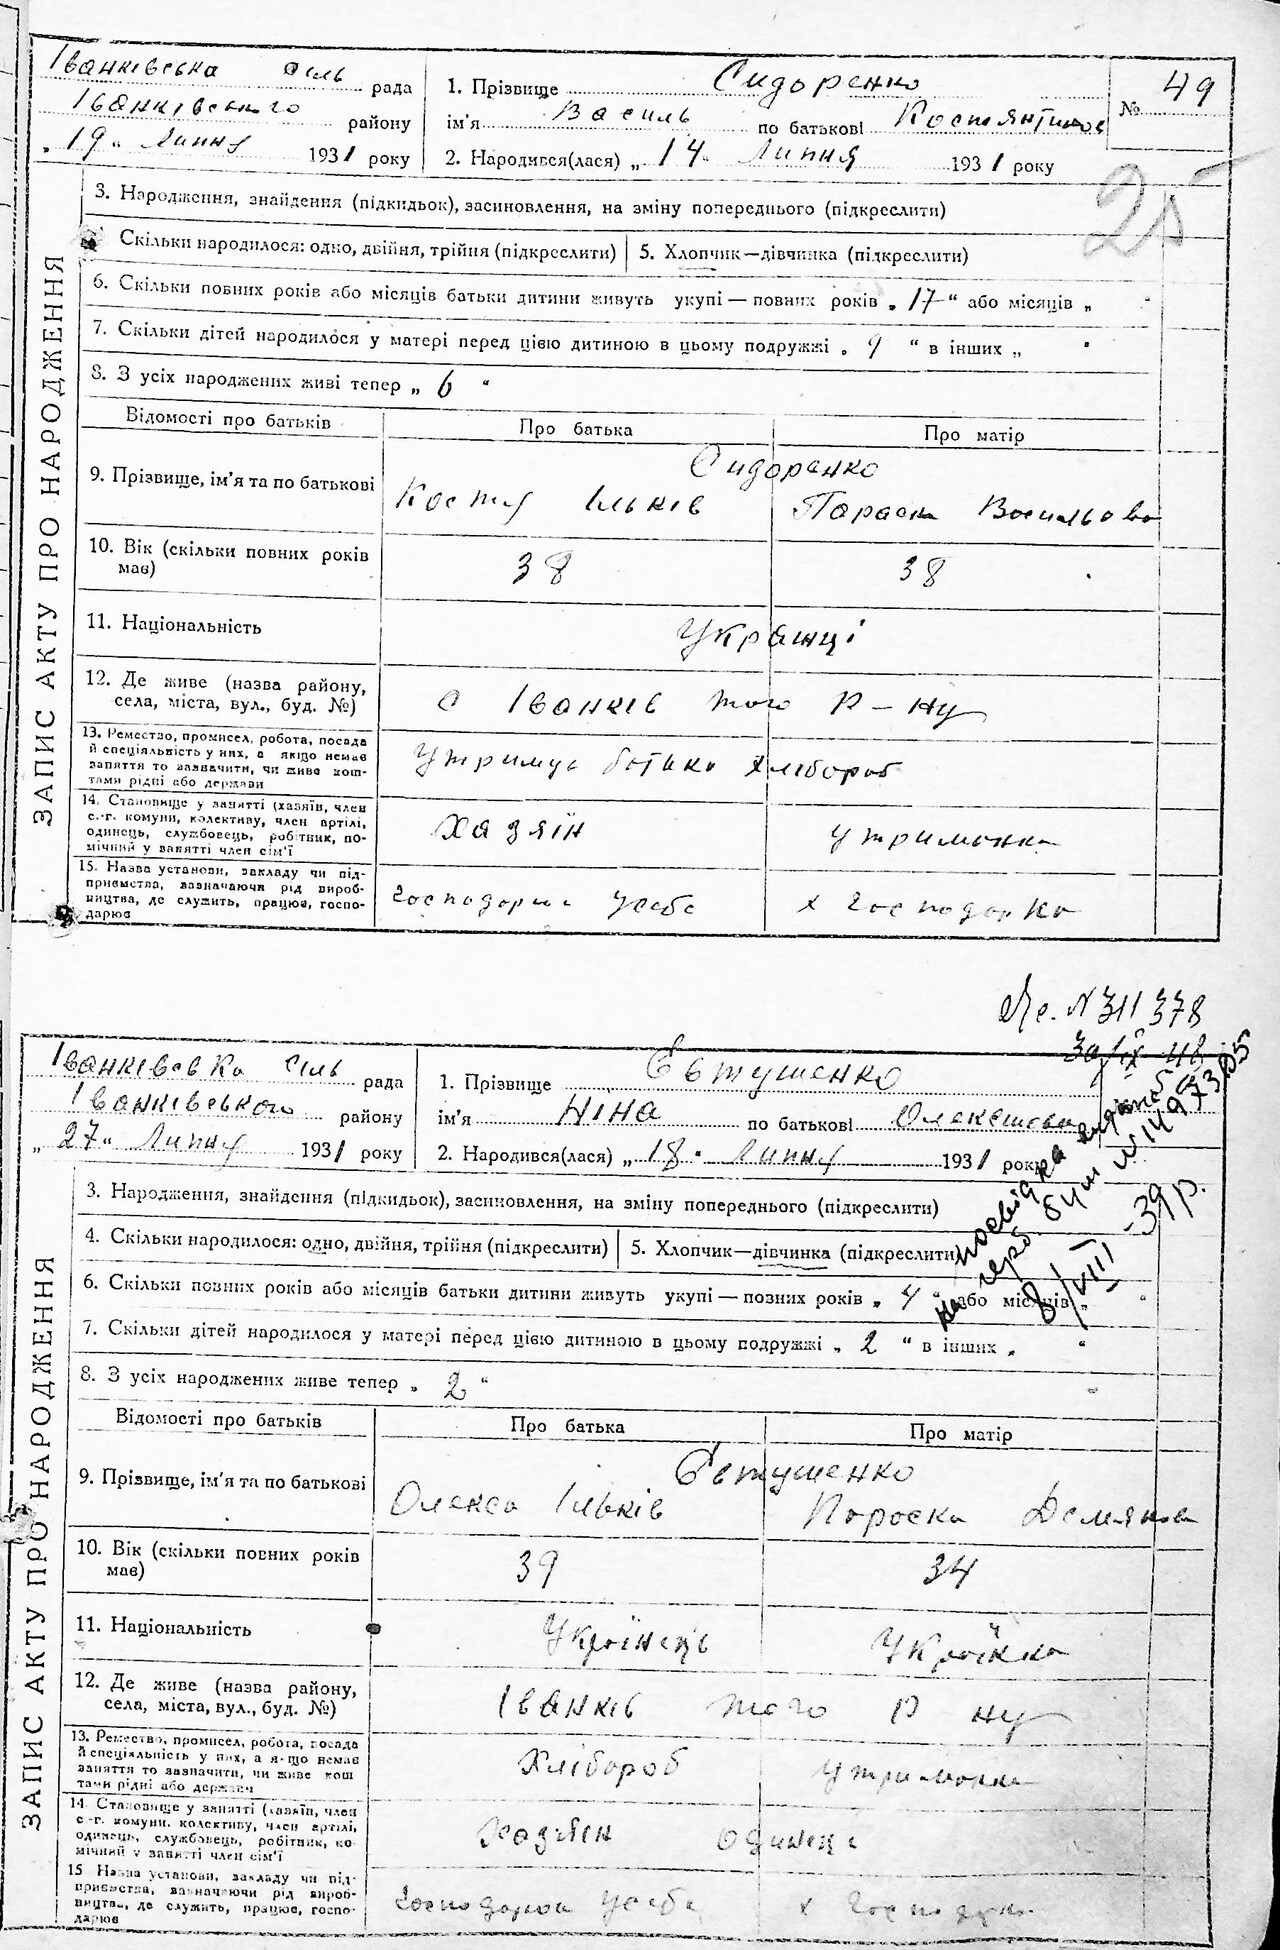 Іванківська сіль рада
Іванківського району
„ 19 „ Липня 1931 року
1. Прізвище Сидоренко
ім'я Василь по батькові Костянтинов
2. Народився(лася) „ 14 „ Липня 1931 року
№ 49
25
ЗАПИС АКТУ ПРО НАРОДЖЕННЯ
3. Народження, знайдення (підкидьок), засиновлення, на зміну попереднього (підкреслити)
Скільки народилося: одно, двійня, трійня (підкреслити) 5. Хлопчик—дівчинка (підкреслити)
6. Скільки повних років або місяців батьки дитини живуть укупі — повних років „ 17 “ або місяців „ “
7. Скільки дітей народилося у матері перед цією дитиною в цьому подружжі „ 9 “ в інших „ “
8. З усіх народжених живі тепер „ 6 “
Відомості про батьків Про батька Про матір
9. Прізвище, ім'я та по батькові
Сидоренко
Костя Ільків Параска Васильова
10. Вік (скільки повних років має) 38 38
11. Національність Українці
12. Де живе (назва району, села, міста, вул., буд. №) с Іванків того р-ну
13. Ремество, промисел, робота, посада
й спеціяльність у них, а якщо немає
заняття то зазначити, чи живе кош-
тами рідні або держави
Утримує батько хлібороб
14. Становище у занятті (хазяїн, член
с.-г. комуни, колективу, член артілі,
одинець, службовець, робітник, по-
мічний у занятті член сім'ї
Хазяїн утриманка
15. Назва установи, закладу чи під-
приємства, зазначаючи рід вироб-
ництва, де служить, працює, госпо-
дарює
усебе х Господарка
№ 311378
30/IX 48
Іванківска сіль рада
Іванківського району
„ 27 „ Липня 1931 року
1. Прізвище Євтушенко
ім'я Ніна по батькові
2. Народився(лася) „ 18 „ Липня 1931 року
8/VIII -39 р.
ЗАПИС АКТУ ПРО НАРОДЖЕННЯ
3. Народження, знайдення (підкидьок), засиновлення, на зміну попереднього (підкреслити)
4. Скільки народилося: одно, двійня, трійня (підкреслити) 5. Хлопчик—дівчинка (підкреслити)
6. Скільки повних років або місяців батьки дитини живуть укупі — повних років „ 4 “ або місяців „ “
7. Скільки дітей народилося у матері перед цією дитиною в цьому подружжі „ 2 “ в інших „ “
8. З усіх народжених живе тепер „ 2 “
Відомості про батьків Про батька Про матір
9. Прізвище, ім'я та по батькові
Євтушенко
Олекса Ільків Пороска Демянова
10. Вік (скільки повних років має) 39 34
11. Національність Українець Українка
12. Де живе (назва району, села, міста, вул., буд. №) Іванків того р ну
13. Ремество, промисел, робота, посада
й спеціяльність у них, а якщо немає
заняття то зазначити, чи живе кош
тами рідні або держави
Хлібороб утриманка
14. Становище у занятті (хазяїн, член
с.-г. комуни, колективу, член артілі,
одинець, службовець, робітник, по-
мічний у занятті член сім'ї
Хазяїн
15 Назва установи, закладу чи під-
приємства, зазначаючи рід вироб-
ництва, де служить, працює, госпо-
дарює
усебе х